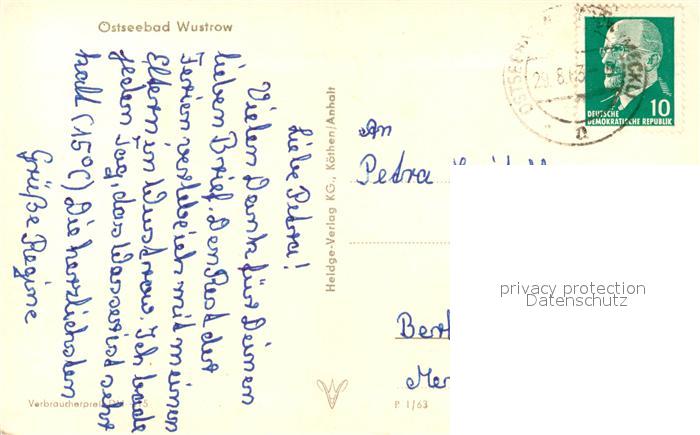 Ostseebad Wustrow
Liebe Petra!
Vielen Dank für Deinen
lieben Brief. Den Rest der
Ferien verlebe ich mit meinen
Eltern in Wustrow. Ich bade
jeden Tag, das Wasser ist sehr
kalt (15°C) Die herzlichsten
Grüße Regine
Verbraucherpreis
Heldge-Verlag KG., Köthen/Anhalt
P 1/63
OSTSEEBAD
29.8.63
MECKL
10
DEUTSCHE
DEMOKRATISCHE REPUBLIK
An
Petra
privacy protection
Datenschutz